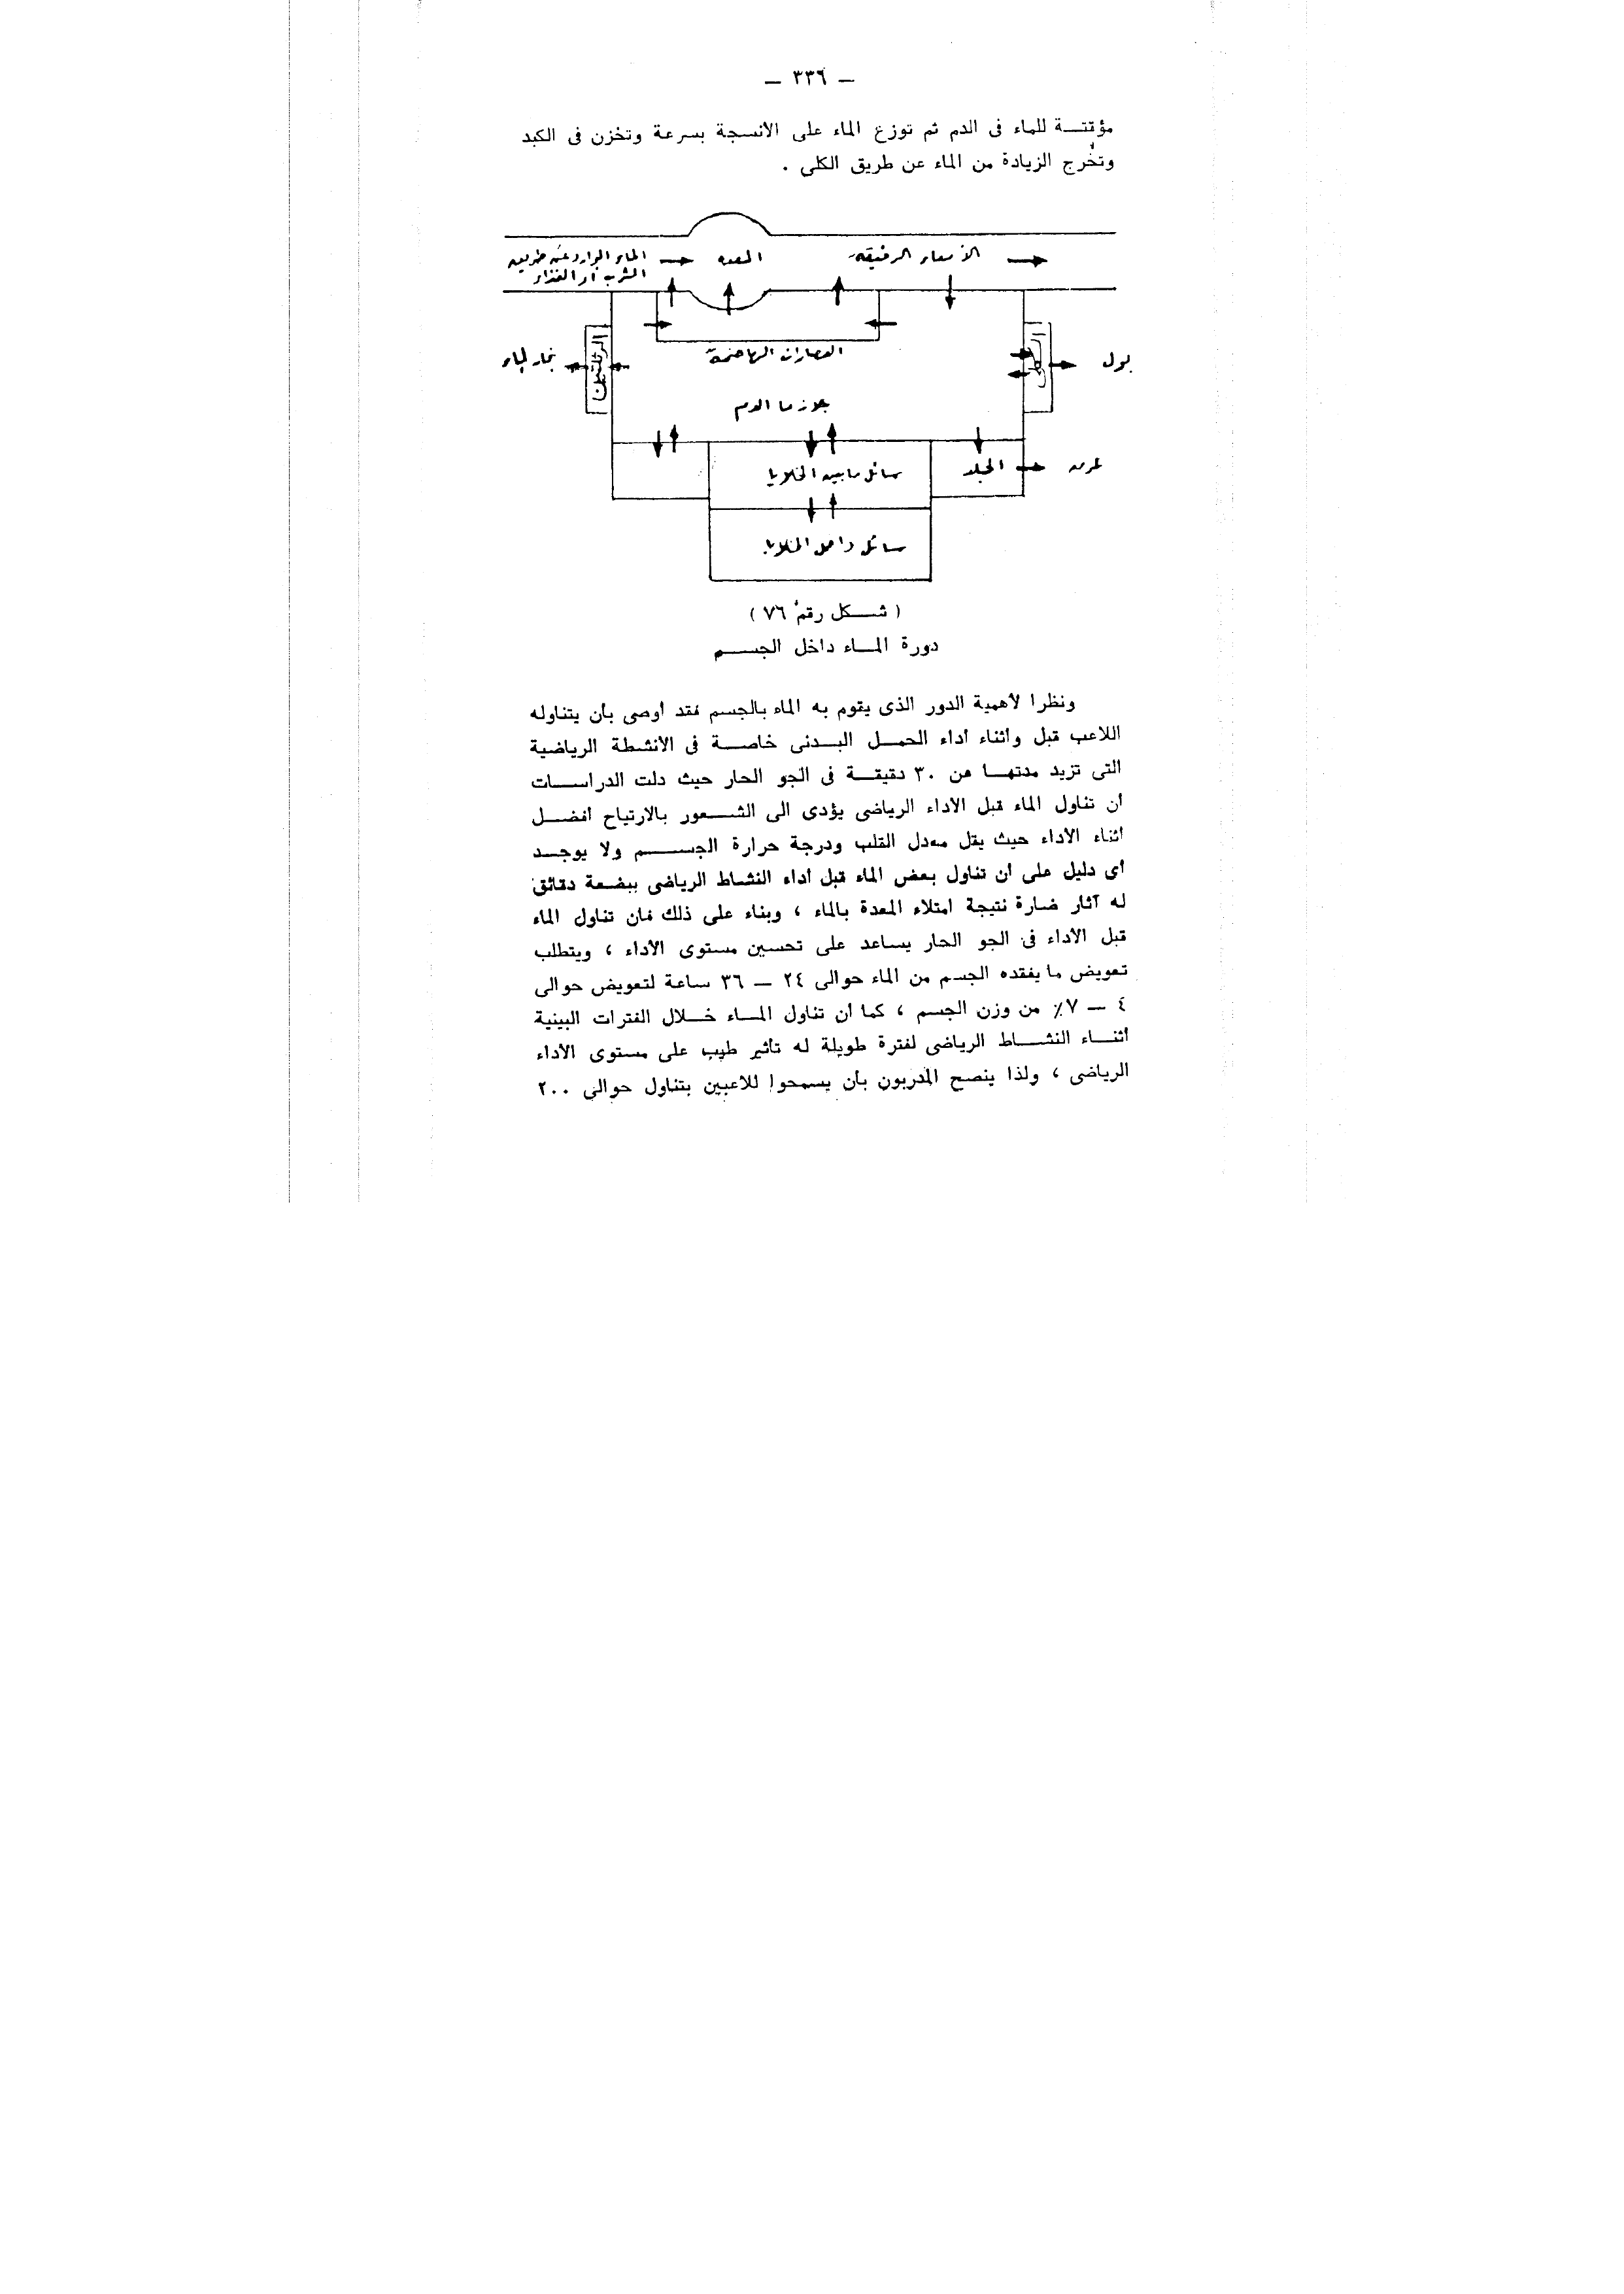 — ٣٣٦ —
مؤقتـــة للماء فى الدم ثم توزع الماء على الانسجة بسرعة وتخزن فى الكبد
وتخُرج الزيادة من الماء عن طريق الكلى .
الماء الوارد عن طريق
الشرب أو الغذاء
المعده
الأمعاء الرفيقة
العصارات الهاضمة
الرئتين
بخار الماء
الكلى
بول
بلازما الدم
سائل مابين الخلايا
الجلد
عرق
سائل داخل الخلايا
( شـــكل رقم ٧٦ )
دورة المــاء داخل الجســـم
ونظرا لأهمية الدور الذى يقوم به الماء بالجسم فقد أوصى بأن يتناوله
اللاعب قبل واثناء اداء الحمــل البــدنى خاصــة فى الأنشطة الرياضية
التى تزيد مدتهــا من ٣٠ دقيقــة فى الجو الحار حيث دلت الدراســات
أن تناول الماء قبل الأداء الرياضى يؤدى الى الشــعور بالارتياح أفضــل
اثناء الأداء حيث يقل معدل القلب ودرجة حرارة الجســـم ولا يوجــد
أى دليل على أن تناول بعض الماء قبل أداء النشاط الرياضى ببضعة دقائق
له آثار ضارة نتيجة امتلاء المعدة بالماء ، وبناء على ذلك فان تناول الماء
قبل الأداء فى الجو الحار يساعد على تحسين مستوى الأداء ، ويتطلب
تعويض ما يفقده الجسم من الماء حوالى ٢٤ — ٣٦ ساعة لتعويض حوالى
٤ — ٧٪ من وزن الجسم ، كما أن تناول المــاء خــلال الفترات البينية
أثنــاء النشــاط الرياضى لفترة طويلة له تأثير طيب على مستوى الأداء
الرياضى ، ولذا ينصح المدربون بأن يسمحوا للاعبين بتناول حوالى ٢٠٠